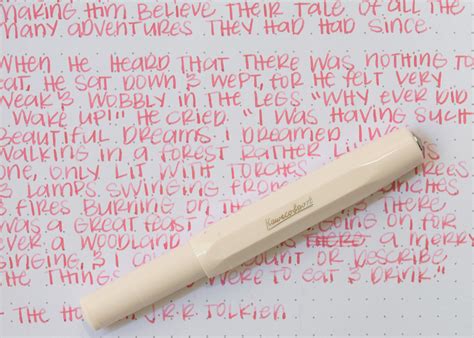 MAKING HIM BELIEVE THEIR TALE OF ALL THE
MANY ADVENTURES THEY HAD HAD SINCE.
WHEN HE HEARD THAT THERE WAS NOTHING TO
EAT, HE SAT DOWN & WEPT, FOR HE FELT VERY
WEAK & WOBBLY IN THE LEGS. "WHY EVER DID
WAKE UP!" HE CRIED. "I WAS HAVING SUCH
BEAUTIFUL DREAMS. I DREAMED I WAS
WALKING IN A FOREST RATHER
ONE, ONLY LIT WITH TORCHES
& LAMPS SWINGING FROM
& FIRES BURNING ON THE
WAS A GREAT FEAST GOING ON
WOODLAND THERE A
COUNT OR DESCRIBE
THE THINGS WERE TO EAT & DRINK."
- THE J.R.R. TOLKIEN
Kaweco Sport